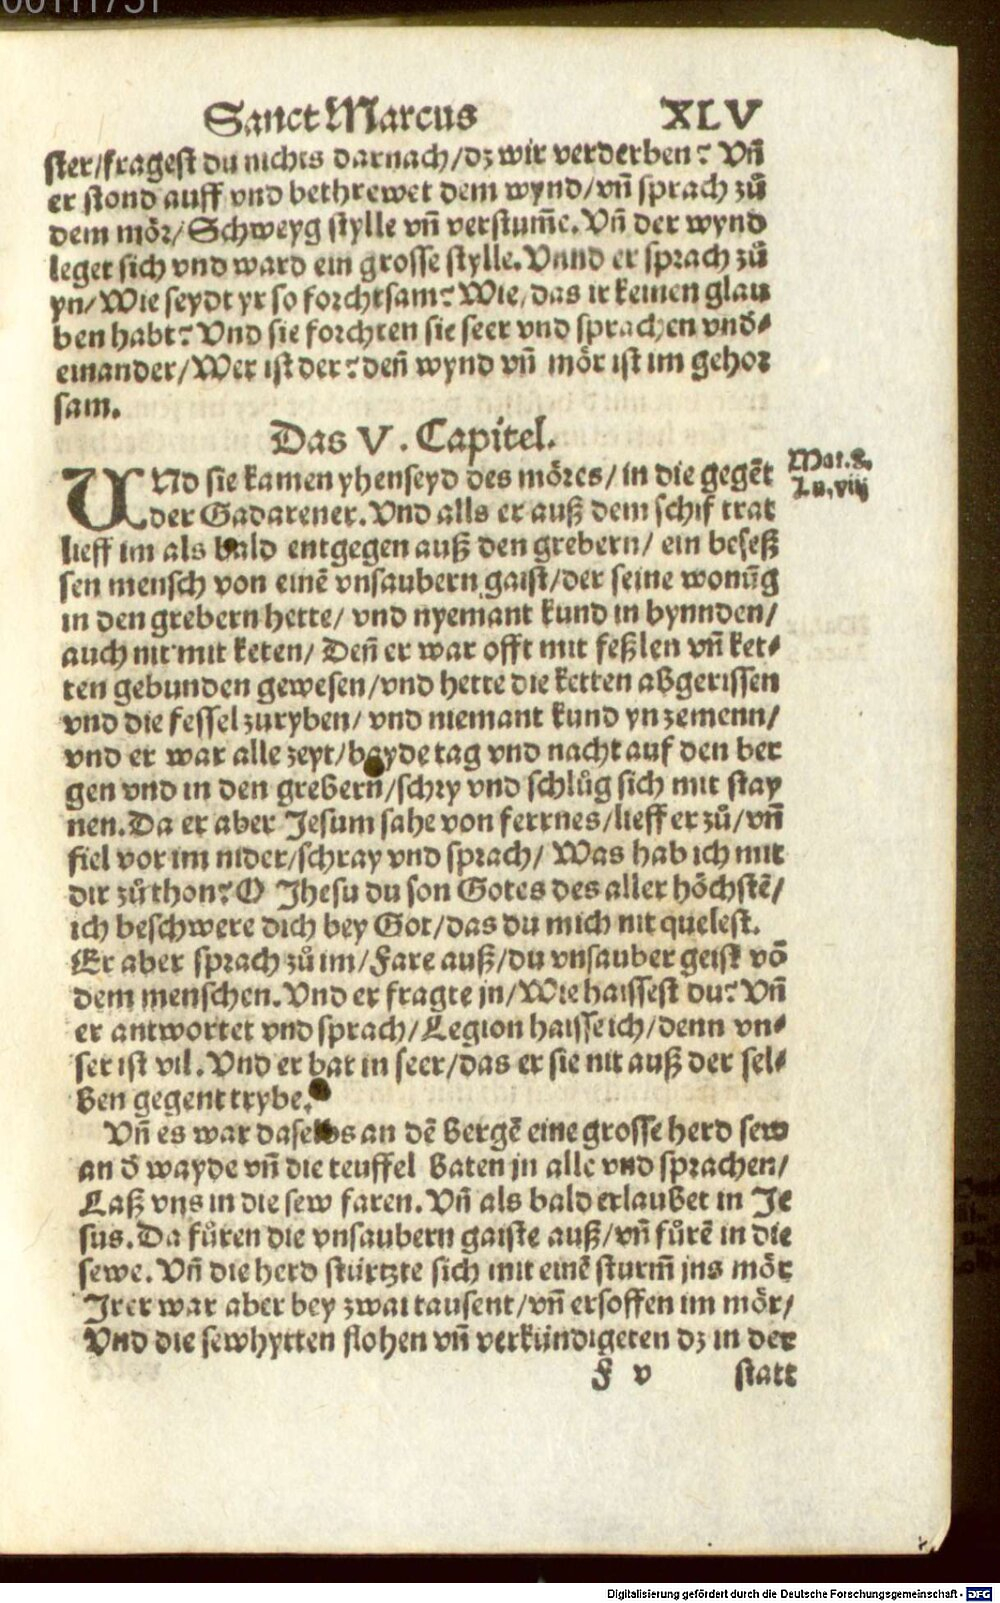 00111751
Sanct Marcus XLV
ster/fragest du nichts darnach/dz wir verderben? Vñ
er stond auff vnd bethrewet dem wynd/vñ sprach zů
dem mör/Schweyg stylle vñ verstum̃e. Vñ der wynd
leget sich vnd ward ein grosse stylle. Vnnd er sprach zů
yn/Wie seydt yr so forchtsam? Wie/das ir keinen glau
ben habt? Vnd sie forchten sie seer vnd sprachen vnd⸗
einander/Wer ist der? deñ wynd vñ mör ist im gehor
sam.
Das V. Capitel.
VNd sie kamen yhenseyd des möres/in die gegēt
der Gadarener. Vnd alls er auß dem schif trat
lieff im als bald entgegen auß den grebern/ein beseß
sen mensch von einē vnsaubern gaist/der seine wonūg
in den grebern hette/vnd nyemant kund in bynnden/
auch nit mit keten/Deñ er war offt mit feßlen vñ ket⸗
ten gebunden gewesen/vnd hette die ketten abgerissen
vnd die fessel zuryben/vnd niemant kund yn zemenn/
vnd er war alle zeyt/bayde tag vnd nacht auf den ber
gen vnd in den grebern/schry vnd schlůg sich mit stay
nen. Da er aber Jesum sahe von ferrnes/lieff er zů/vñ
fiel vor im nider/schray vnd sprach/Was hab ich mit
dir zů thon? O Jhesu du son Gotes des aller höchstē/
ich beschwere dich bey Got/das du mich nit quelest.
Er aber sprach zů im/Fare auß/du vnsauber geist vō
dem menschen. Vnd er fragte jn/Wie haissest du? Vñ
er antwortet vnd sprach/Legion haisse ich/denn vn⸗
ser ist vil. Vnd er bat in seer/das er sie nit auß der sel⸗
ben gegent trybe.
Vñ es war daselbs an dē bergē eine grosse herd sew
an d̄ wayde vñ die teuffel baten jn alle vnd sprachen/
Laß vns in die sew faren. Vñ als bald erlaubet in Je
sus. Da fůren die vnsaubern gaiste auß/vñ fůrē in die
sewe. Vñ die herd stürtzte sich mit einē sturm̃ jns mör
Irer war aber bey zwai tausent/vñ ersoffen im mör/
Vnd die sewhytten flohen vñ verkündigeten dz in der
F v statt
Mat.8.
Lu.viij
Digitalisierung gefördert durch die Deutsche Forschungsgemeinschaft - DFG